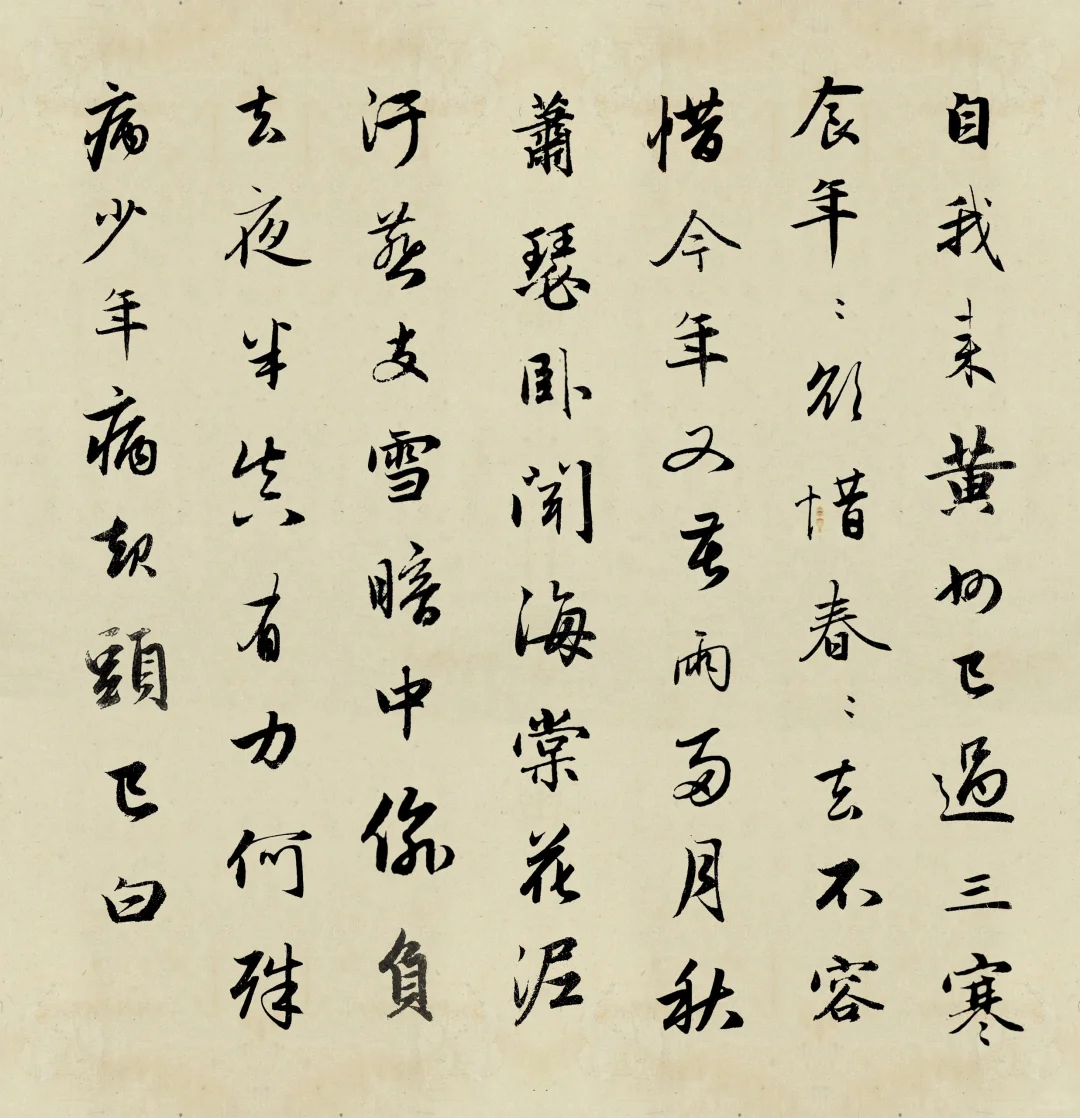 自我来黄州已過三寒
食年〻欲惜春〻去不容
惜今年又苦雨兩月秋
蕭瑟卧聞海棠花泥
汙燕支雪暗中偷負
去夜半真有力何殊
病少年病起頭已白